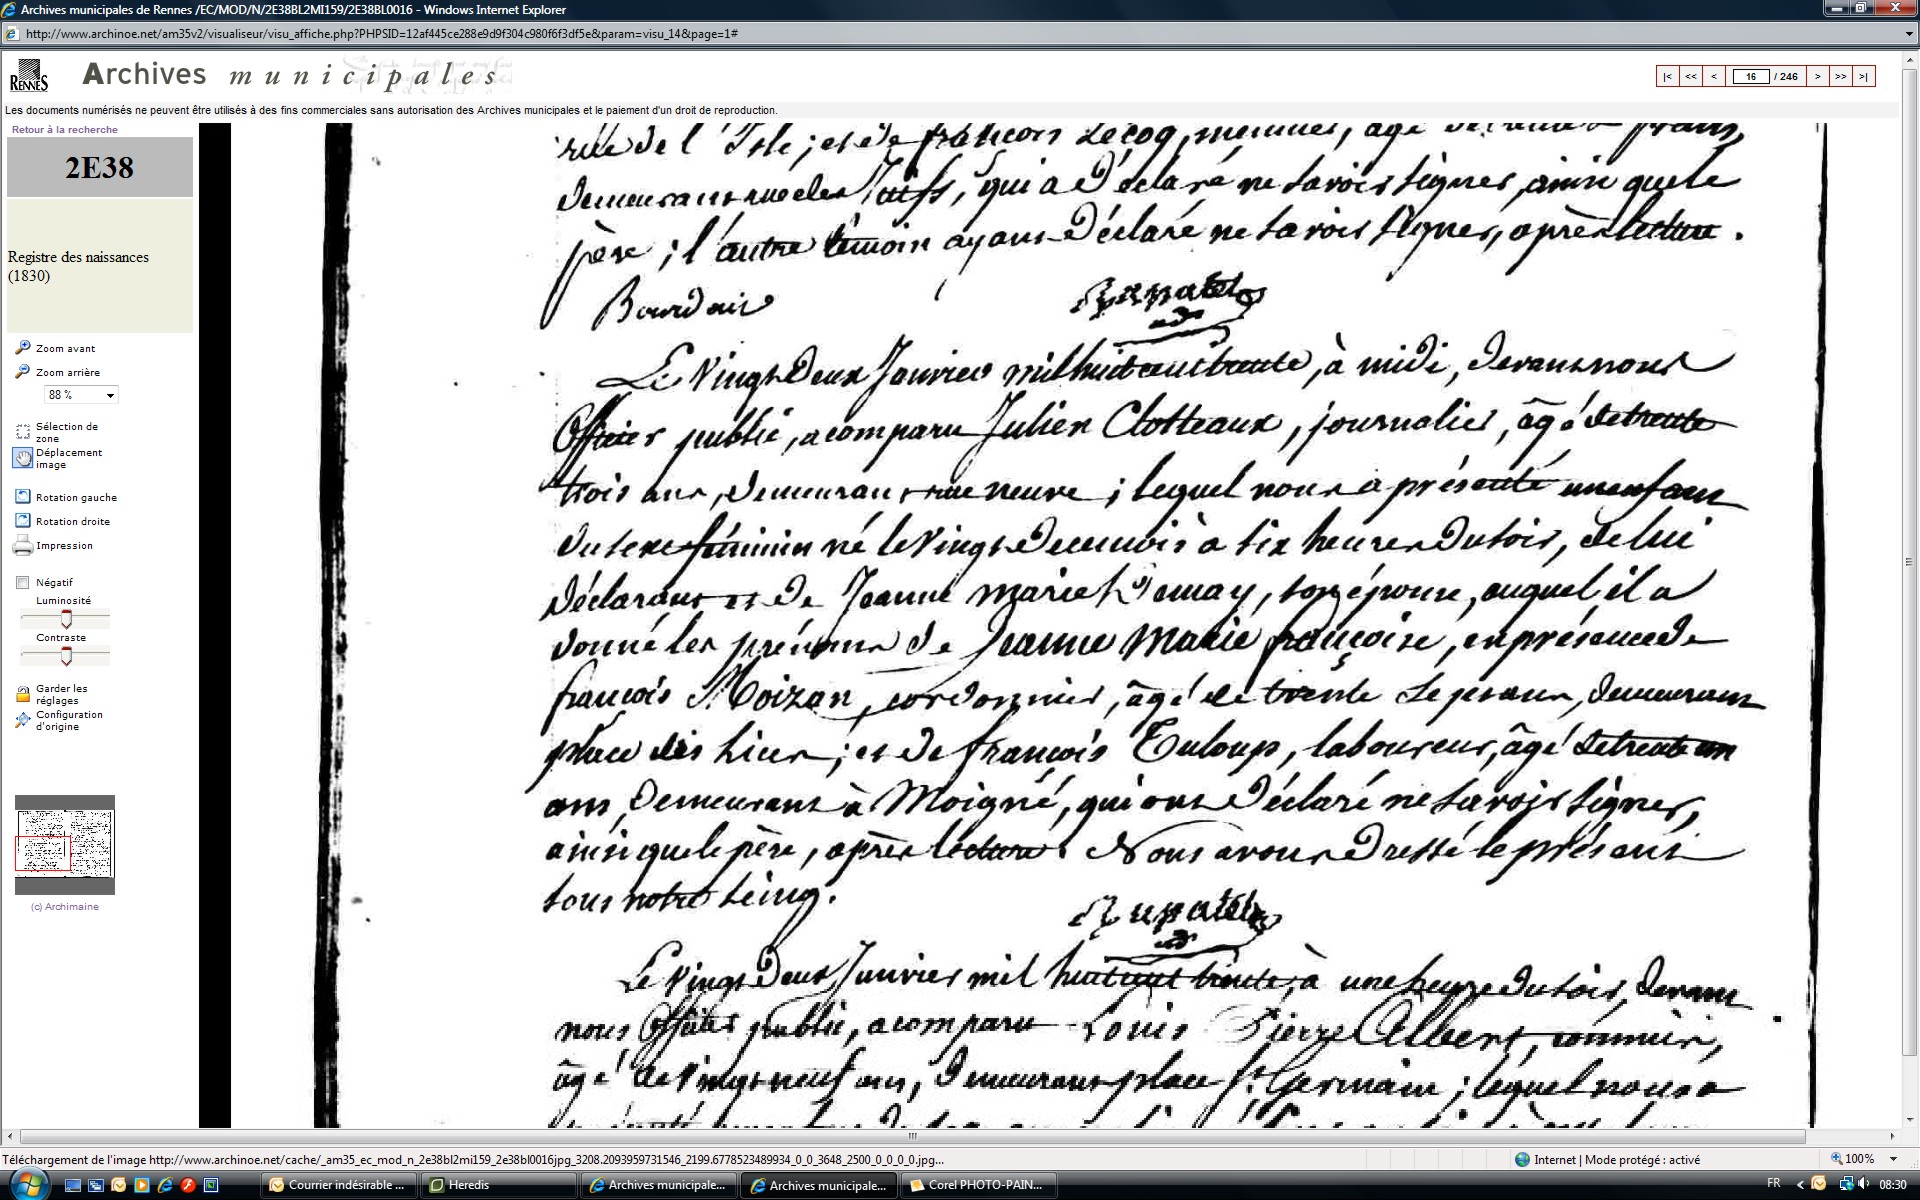 Archives municipales de Rennes /EC/MOD/N/2E38BL2MI159/2E38BL0016 - Windows Internet Explorer
http://www.archinoe.net/am35v2/visualiseur/visu_affiche.php?PHPSID=12af445ce288e9d9f304c980f6f3df5e&param=visu_14&page=1#
RENNES Archives municipales
|< << < 16 / 246 > >> >|
Les documents numérisés ne peuvent être utilisés à des fins commerciales sans autorisation des Archives municipales et le paiement d'un droit de reproduction.
Retour à la recherche
2E38
Registre des naissances
(1830)
Zoom avant
Zoom arrière
88 %
Sélection de
zone
Déplacement
image
Rotation gauche
Rotation droite
Impression
Négatif
Luminosité
Contraste
Garder les
réglages
Configuration
d'origine
(c) Archimaine
rue de l'Isle; et de françois Lecoq, âgé de
demeurant rue des Juifs, qui a Déclaré ne savoir signer, ainsi que le
père; l'autre témoin ayant Déclaré ne savoir signer, après lecture.
Le Vingt Deux Janvier mil huit cent trente, à midi, devant nous
Officier public, a comparu Julien Clotteaux, journalier, âgé de trente
trois ans, demeurant rue neuve; lequel nous a présenté un enfant
du sexe féminin né le Vingt De ce mois à six heures du soir, de lui
déclarant et de Jeanne Marie, son épouse, auquel il a
donné les prénoms de Jeanne Marie françoise, en présence de
françois Moizan, cordonnier, âgé de trente sept ans, demeurant
place des Lices; et de françois Tuloup, laboureur, âgé de trente un
ans, Demeurant à Moigné, qui ont Déclaré ne savoir signer,
ainsi que le père, après lecture. Nous avons Dressé le présent
sous notre seing.
Le Vingt Deux Janvier mil huit cent trente, à une heure du soir, devant
nous Officier public, a comparu Louis Pierre Albert,
âgé de Vingt neuf ans, Demeurant place St. Germain; lequel nous a
Téléchargement de l'image http://www.archinoe.net/cache/_am35_ec_mod_n_2e38bl2mi159_2e38bl0016jpg_3208.2093959731546_2199.6778523489934_0_0_3648_2500_0_0_0_0.jpg...
Internet | Mode protégé : activé
100%
Courrier indésirable ...
Heredis
Archives municipale...
Archives municipale...
Corel PHOTO-PAIN...
FR
08:30